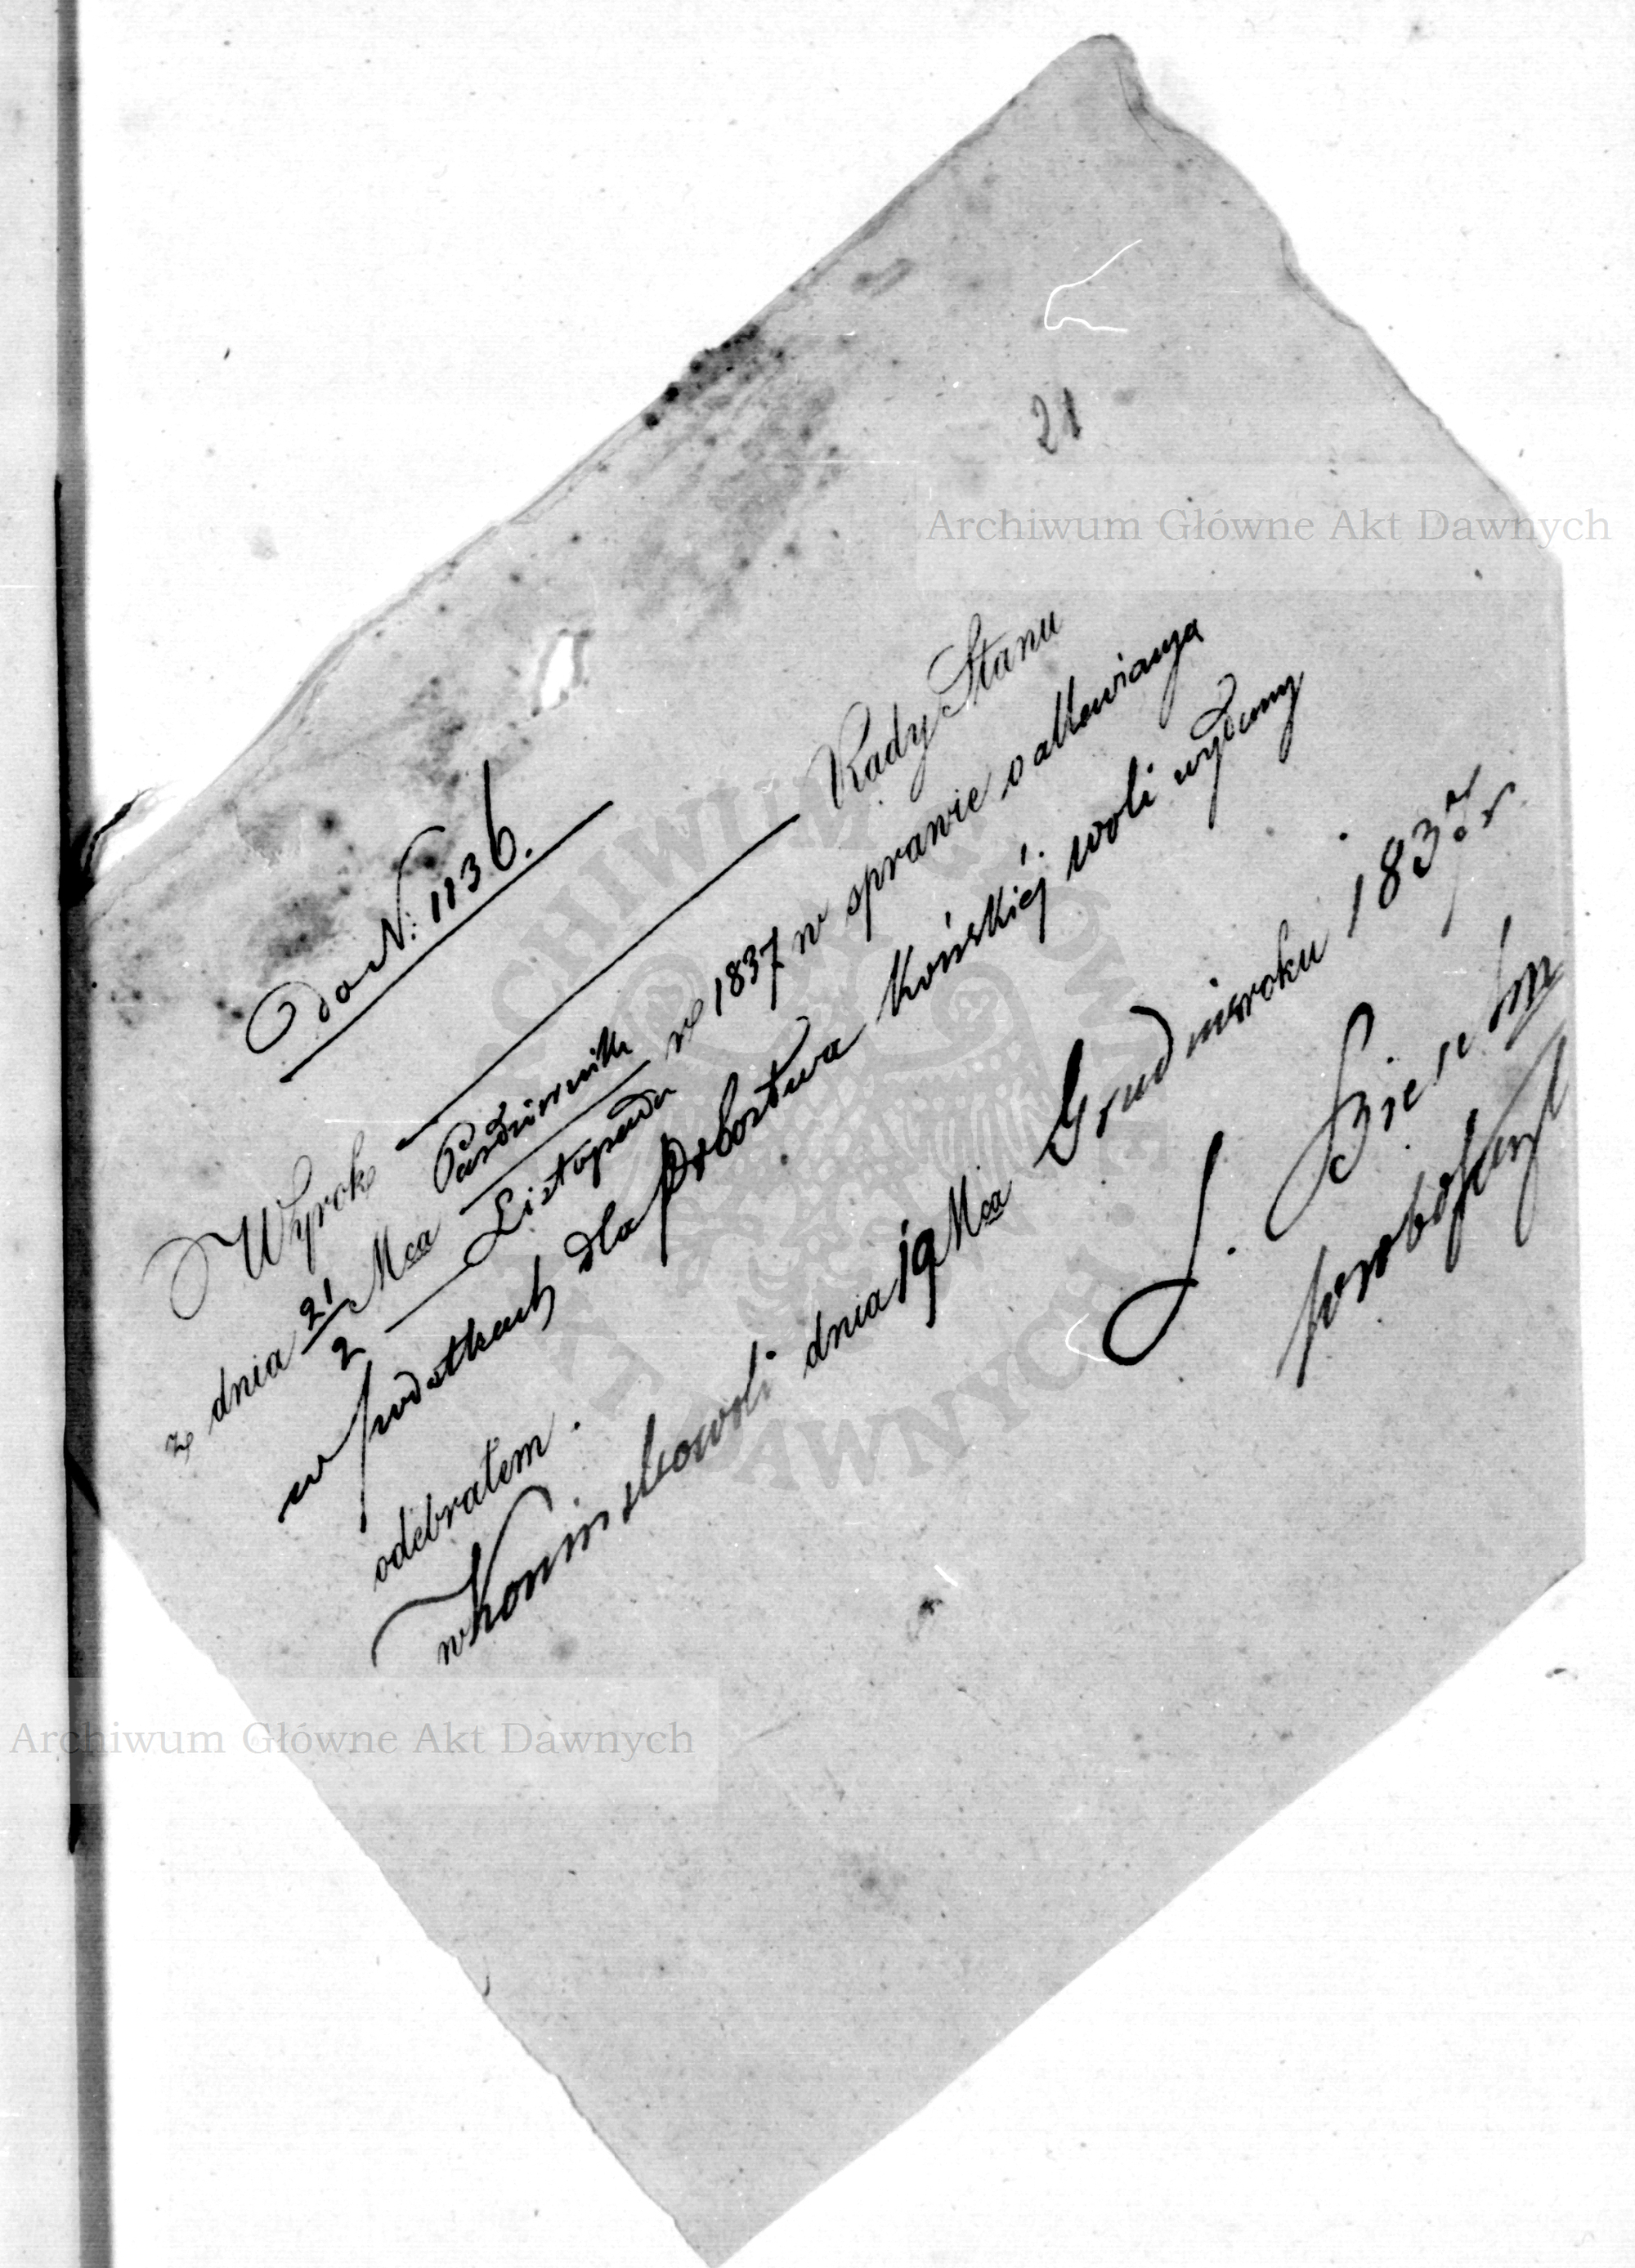 21
Do N: 1136.
Wyrok — Rady Stanu
z dnia 21/2 Mca Październik/Listopada re 1837 w sprawie o
w dla Probostwa Końskiéj woli wydany
odebrałem.
w Konin skowoli dnia 19 Mca Grudnia roku 1837 r
J.
proboszcz
Archiwum Główne Akt Dawnych
Archiwum Główne Akt Dawnych